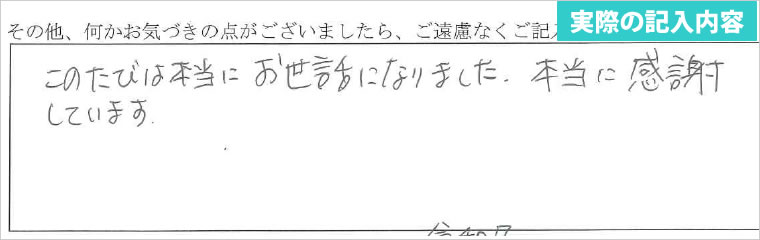 その他、何かお気づきの点がございましたら、ご遠慮なくご記入
実際の記入内容
このたびは本当に お世話になりました. 本当に 感謝
しています.